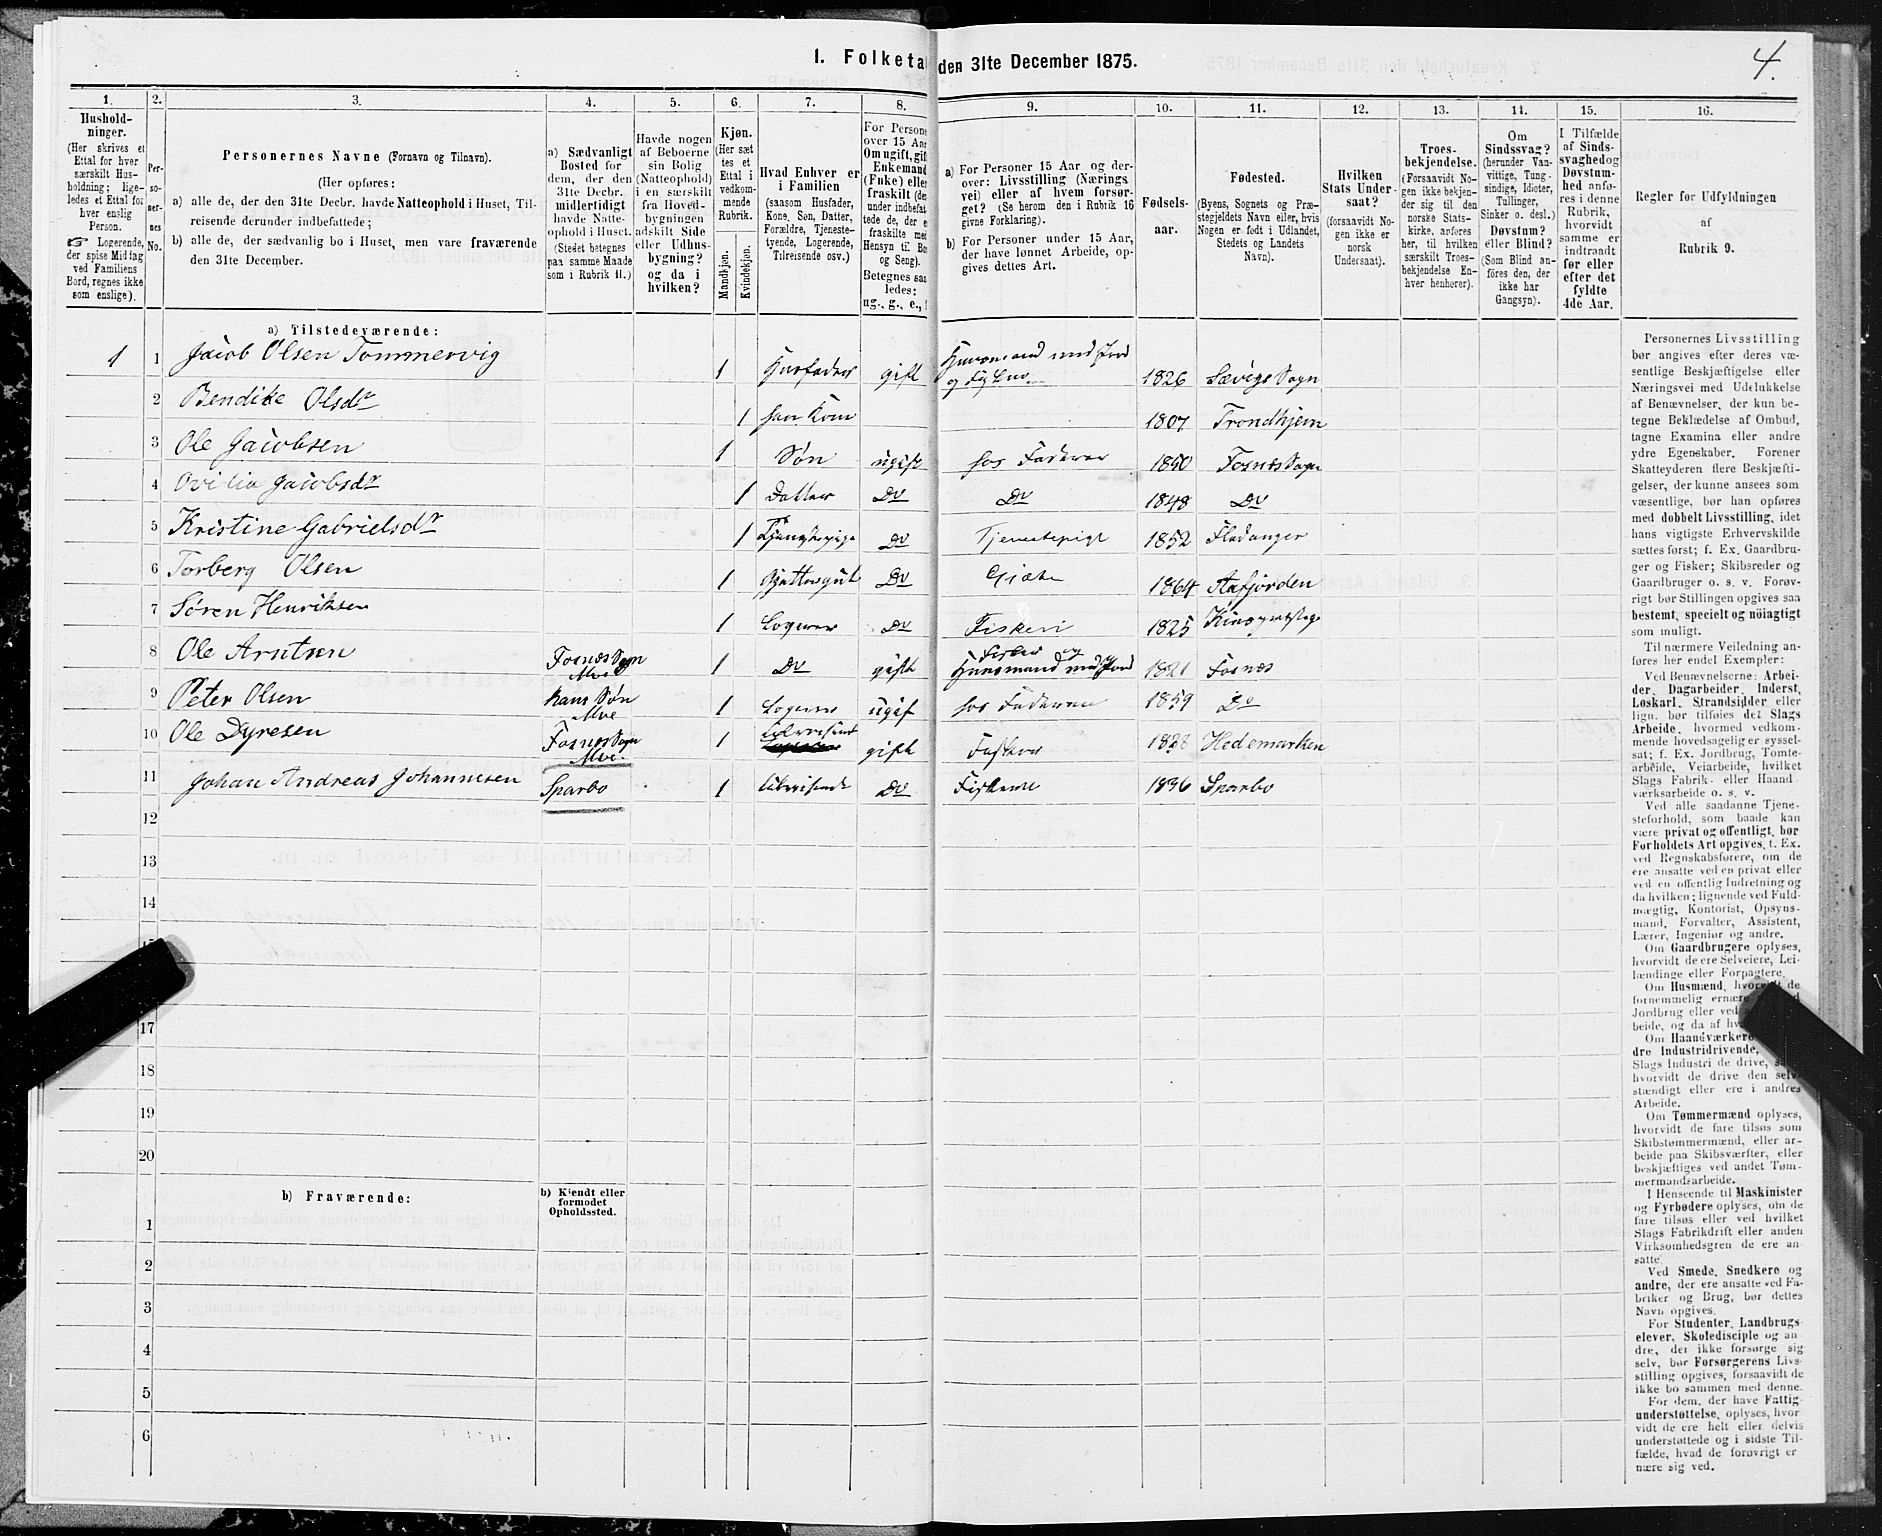 1. Folketa den 31te December 1875.
4.
1.
Hushold-
ninger.
(Her skrives et
Ettal for hver
særskilt Hus-
holdning; lige-
ledes et Ettal for
hver enslig
Person.
☞ Logerende,
der spise Middag
ved Familiens
Bord, regnes ikke
som enslige).
2.
Per-
so-
ner-
nes
No.
3.
Personernes Navne (Fornavn og Tilnavn).
(Her opføres:
a) alle de, der den 31te Decbr. havde Natteophold i Huset, Til-
reisende derunder indbefattede;
b) alle de, der sædvanlig bo i Huset, men vare fraværende
den 31te December.
4.
a) Sædvanligt
Bosted for
dem, der den
31te Decbr.
midlertidigt
havde Natte-
ophold i Huset.
(Stedet betegnes
paa samme Maade
som i Rubrik 11.)
5.
Havde nogen
af Beboerne
sin Bolig
(Natteophold)
i en særskilt
fra Hoved-
bygningen
adskilt Side
eller Udhus-
bygning?
og da i
hvilken?
6.
Kjøn.
(Her sæt-
tes et
Ettal i
vedkom-
mende
Rubrik.
Mandkjøn.
Kvindekjøn.
7.
Hvad Enhver er
i Familien
(saasom Husfader,
Kone, Søn, Datter,
Forældre, Tjeneste-
tyende, Logerende,
Tilreisende osv.)
8.
For Persone
over 15 Aar
Om ugift, gif
Enkemand
(Enke) elle
fraskilt (de
under indbefat
tede de, der e
fraskilte med
Hensyn til Bo
og Seng).
Betegnes saa
ledes:
ug., g., e.,
9.
a) For Personer 15 Aar og der-
over: Livsstilling (Nærings
vei) eller af hvem forsør-
get? (Se herom den i Rubrik 16
givne Forklaring).
b) For Personer under 15 Aar,
der have lønnet Arbeide, op-
gives dettes Art.
10.
Fødsels-
aar.
11.
Fødested.
(Byens, Sognets og Præ-
stegjeldets Navn eller, hvis
Nogen er født i Udlandet,
Stedets og Landets
Navn).
12.
Hvilken
Stats Under-
saat?
(forsaavidt No-
gen ikke er
norsk
Undersaat).
13.
Troes-
bekjendelse.
(Forsaavidt No-
gen ikke bekjen-
der sig til den
norske Stats-
kirke, anføres
her, til hvilken
særskilt Troes-
bekjendelse En-
hver henhører).
14.
Om
Sindssvag?
(herunder Van-
vittige, Tung-
sindige, Idioter,
Tullinger,
Sinker o. desl.)
Døvstum?
eller Blind?
(Som Blind an-
føres den, der
ikke har
Gangsyn).
15.
I Tilfælde
af Sinds-
svaghed og
Døvstum-
hed anfø-
res i denne
Rubrik,
hvorvidt
samme er
indtraadt
før eller
efter det
fyldte
4de Aar.
16.
Regler for Udfyldningen
af
Rubrik 9.
a) Tilstedeværende:
1 1 Jacob Olsen Tommervig 1 Husfader gift Huusmand med Jord
og Fisker 1826 Sævigs Sogn
2 Bendike Olsdr 1 hans Kone 1807 Trondhjem
3 Ole Jacobsen 1 Søn ugift hos Faderen 1850 Fosnæs Sogn
4 Ovilia Jacobsdr 1 Datter Do Do 1848 Do
5 Kristine Gabrielsdr 1 Do Tjenestepige 1852 Fladanger
6 Torberg Olsen 1 Gjættergut Do Gjæter 1864 Aafjorden
7 Søren Henriksen 1 Logerer Do Fiskeri 1825
8 Ole Arntsen Fosnæs Sogn 1 Do gift Fisker og
Huusmand med Jord 1821 Fosnæs
9 Peter Olsen hans Søn 1 Logerer ugif hos Faderen 1859 Do
10 Ole Dyresen Fosnæs Sogn 1 gift Fisker 1828 Hedemarken
11 Johan Andreas Johannesen Sparbo 1 tilreisende Do Fiskeri 1836 Sparbo
12
13
14
17
18
19
20
b) Fraværende:
b) Kjendt eller
formodet
Opholdssted.
1
2
3
4
5
6
Personernes Livsstilling
bør angives efter deres væ-
sentlige Beskjæftigelse eller
Næringsvei med Udelukkelse
af Benævnelser, der kun be-
tegne Beklædelse af Ombud,
tagne Examina eller andre
ydre Egenskaber. Forener
Skatteyderen flere Beskjæfti-
gelser, der kunne ansees som
væsentlige, bør han opføres
med dobbelt Livsstilling, idet
hans vigtigste Erhvervskilde
sættes først; f. Ex. Gaardbru-
ger og Fisker; Skibsreder og
Gaardbruger o. s. v. Forøv-
rigt bør Stillingen opgives saa
bestemt, specielt og nøiagtigt
som muligt.
Til nærmere Veiledning an-
føres her endel Exempler:
Ved Benævnelserne: Arbei-
der, Dagarbeider, Inderst,
Løskarl, Strandsidder eller
lign. bør tilføies det Slags
Arbeide, hvormed vedkom-
mende hovedsagelig er syssel-
sat; f. Ex. Jordbrug, Tomte-
arbeide, Veiarbeide, hvilket
Slags Fabrik- eller Haand-
værksarbeide o. s. v.
Ved alle saadanne Tjene-
steforhold, som baade kan
være privat og offentligt, bør
Forholdets Art opgives, t. Ex.
ved Regnskabsførere, om de
ere ansatte ved en privat eller
ved en offentlig Indretning og
da hvilken; lignende ved Fuld-
mægtig, Kontorist, Opsyns-
mand, Forvalter, Assistent,
Lærer, Ingeniør og andre.
Om Gaardbrugere oplyses,
hvorvidt de ere Selveiere, Lei-
lændinge eller Forpagtere.
Om Husmænd, hvorvidt de
fornemmelig ernære
Jordbrug eller ved
beide, og da af
Om Haandværkere
dre Industridrivende,
Slags Industri de drive,
hvorvidt de drive den selv-
stændigt eller ere i andres
Arbeide.
Om Tømmermænd oplyses,
hvorvidt de fare tilsøs som
Skibstømmermænd, eller ar-
beide paa Skibsværfter, eller
beskjæftiges ved andet Tøm-
mermandsarbeide.
I Henseende til Maskinister
og Fyrbødere oplyses, om de
fare tilsøs eller ved hvilket
Slags Fabrikdrift eller anden
Virksomhedsgren de ere an-
satte.
Ved Smede, Snedkere og
andre, der ere ansatte ved Fa-
briker og Brug, bør dettes
Navn opgives.
For Studenter, Landbrugs-
elever, Skoledisciple og an-
dre, der ikke forsørge sig
selv, bør Forsørgerens Livs-
stilling opgives, forsaavidt de
ikke bo sammen med denne.
For dem, der have Fattig-
understøttelse, oplyses, hvor-
vidt de ere helt eller delvis
understøttede og i sidste Til-
fælde, hvad de forøvrigt er-
nære sig ved.